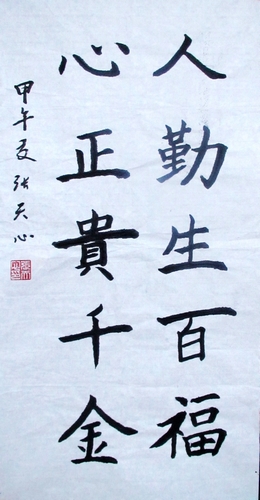 人勤生百福
心正貴千金
甲午夏張天心